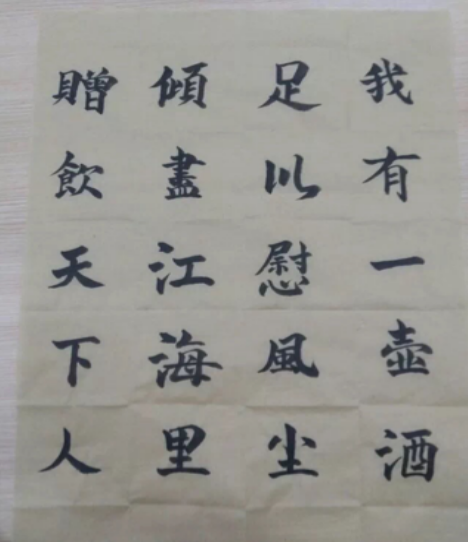 我有一壺酒
足以慰風尘
傾盡江海里
贈飲天下人